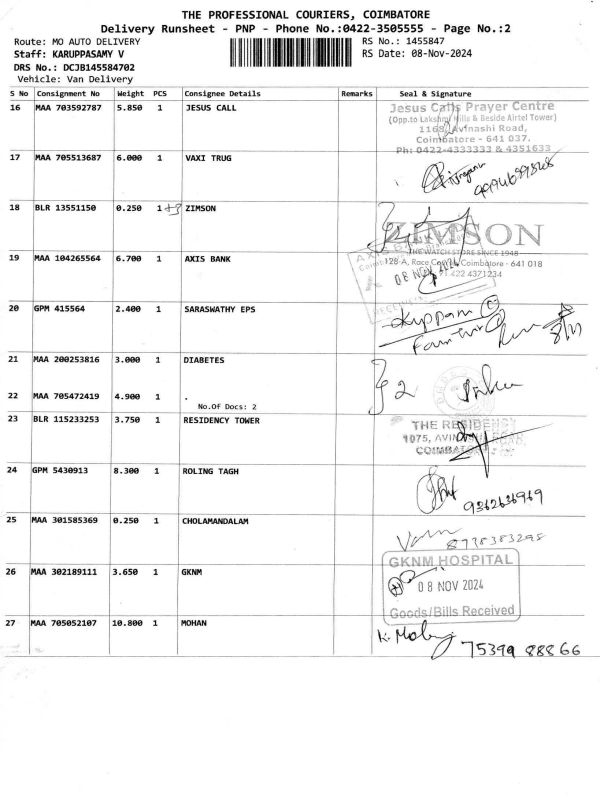 THE PROFESSIONAL COURIERS, COIMBATORE
Delivery Runsheet - PNP - Phone No.:0422-3505555 - Page No.:2
Route: MO AUTO DELIVERY RS No.: 1455847
Staff: KARUPPASAMY V RS Date: 08-Nov-2024
DRS No.: DCJB145584702
Vehicle: Van Delivery
S No Consignment No Weight PCS Consignee Details Remarks Seal & Signature
16 MAA 703592787 5.850 1 JESUS CALL
Jesus Calls Prayer Centre
(Opp.to Lakshmi Mills & Beside Airtel Tower)
Avinashi Road,
Coimbatore - 641 037.
Ph: 0422-4333333 & 4351633
17 MAA 705513687 6.000 1 VAXI TRUG
18 BLR 13551150 0.250 1 ZIMSON
ZIMSON
THE WATCH STORE SINCE 1948
19 MAA 104265564 6.700 1 AXIS BANK
128-A, Race Course, Coimbatore - 641 018
08 NOV 2024
422 4371234
20 GPM 415564 2.400 1 SARASWATHY EPS
21 MAA 200253816 3.000 1 DIABETES
2
22 MAA 705472419 4.900 1 .
No.Of Docs: 2
23 BLR 115233253 3.750 1 RESIDENCY TOWER
THE RESIDENCY
1075, AVINASHI ROAD,
COIMBATORE
24 GPM 5430913 8.300 1 ROLING TAGH
9362636969
25 MAA 301585369 0.250 1 CHOLAMANDALAM
8738383298
26 MAA 302189111 3.650 1 GKNM
GKNM HOSPITAL
08 NOV 2024
Goods/Bills Received
27 MAA 705052107 10.800 1 MOHAN
K. Mohan
75399 88866